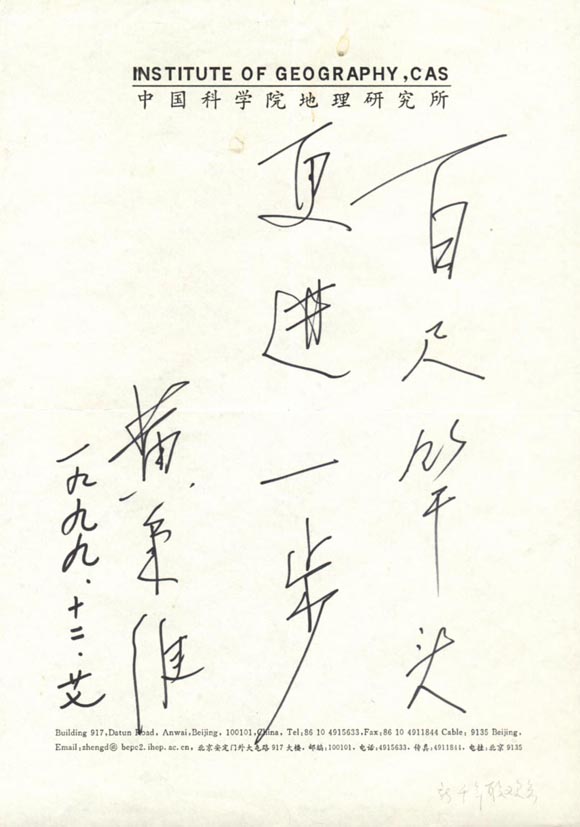 INSTITUTE OF GEOGRAPHY,CAS
中国科学院地理研究所
百尺竿头
更进一步
黄秉维
一九九九.十二.
Building 917,Datun Road, Anwai,Beijing, 100101,China, Tel:86 10 4915633,Fax:86 10 4911844 Cable: 9135 Beijing,
Email:zhengd@ bepc2. ihep. ac. cn, 北京安定门外大屯路 917 大楼, 邮编:100101, 电话:4915633, 传真:4911844, 电挂:北京 9135